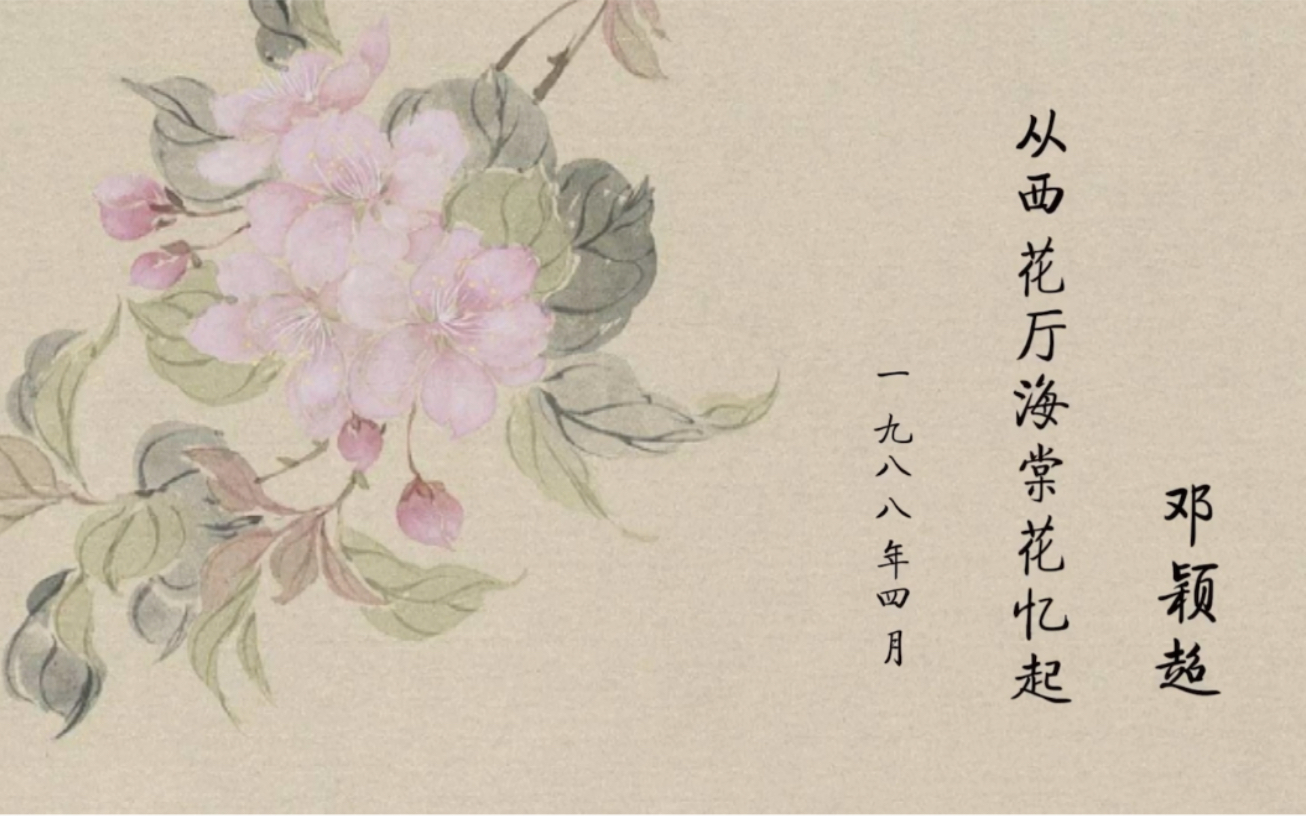 邓颖超
从西花厅海棠花忆起
一九八八年四月